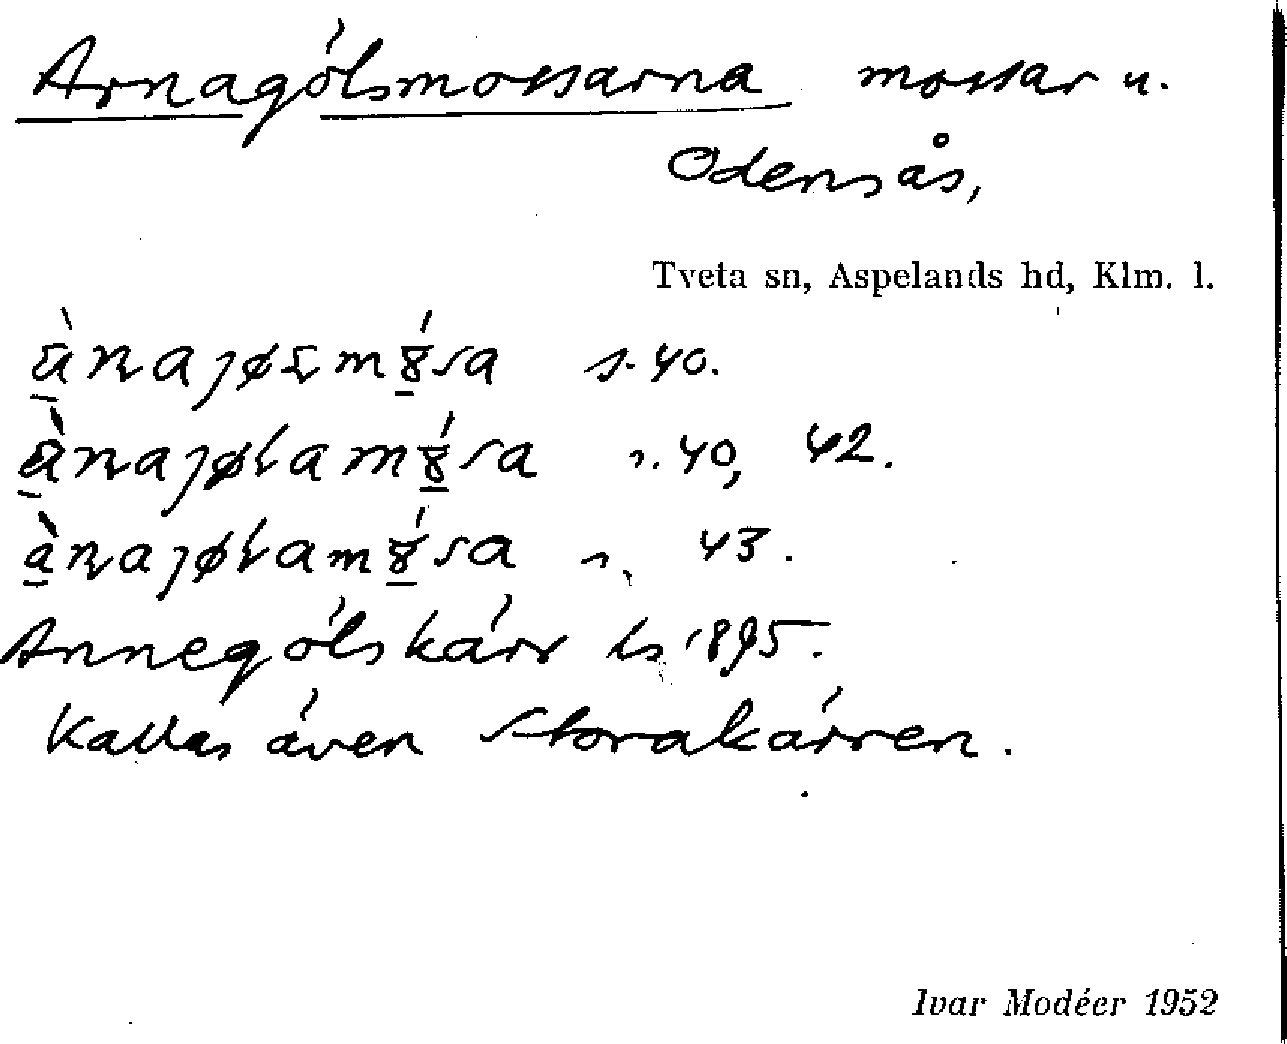 Arnagölsmossarna mossar u.
Odensås,
Tveta sn, Aspelands hd, Klm. l.
s. 40.
s. 40, 42.
s. 43.
Annegölskärr ls 1895.
Kallas även Storakärren.
Ivar Modéer 1952